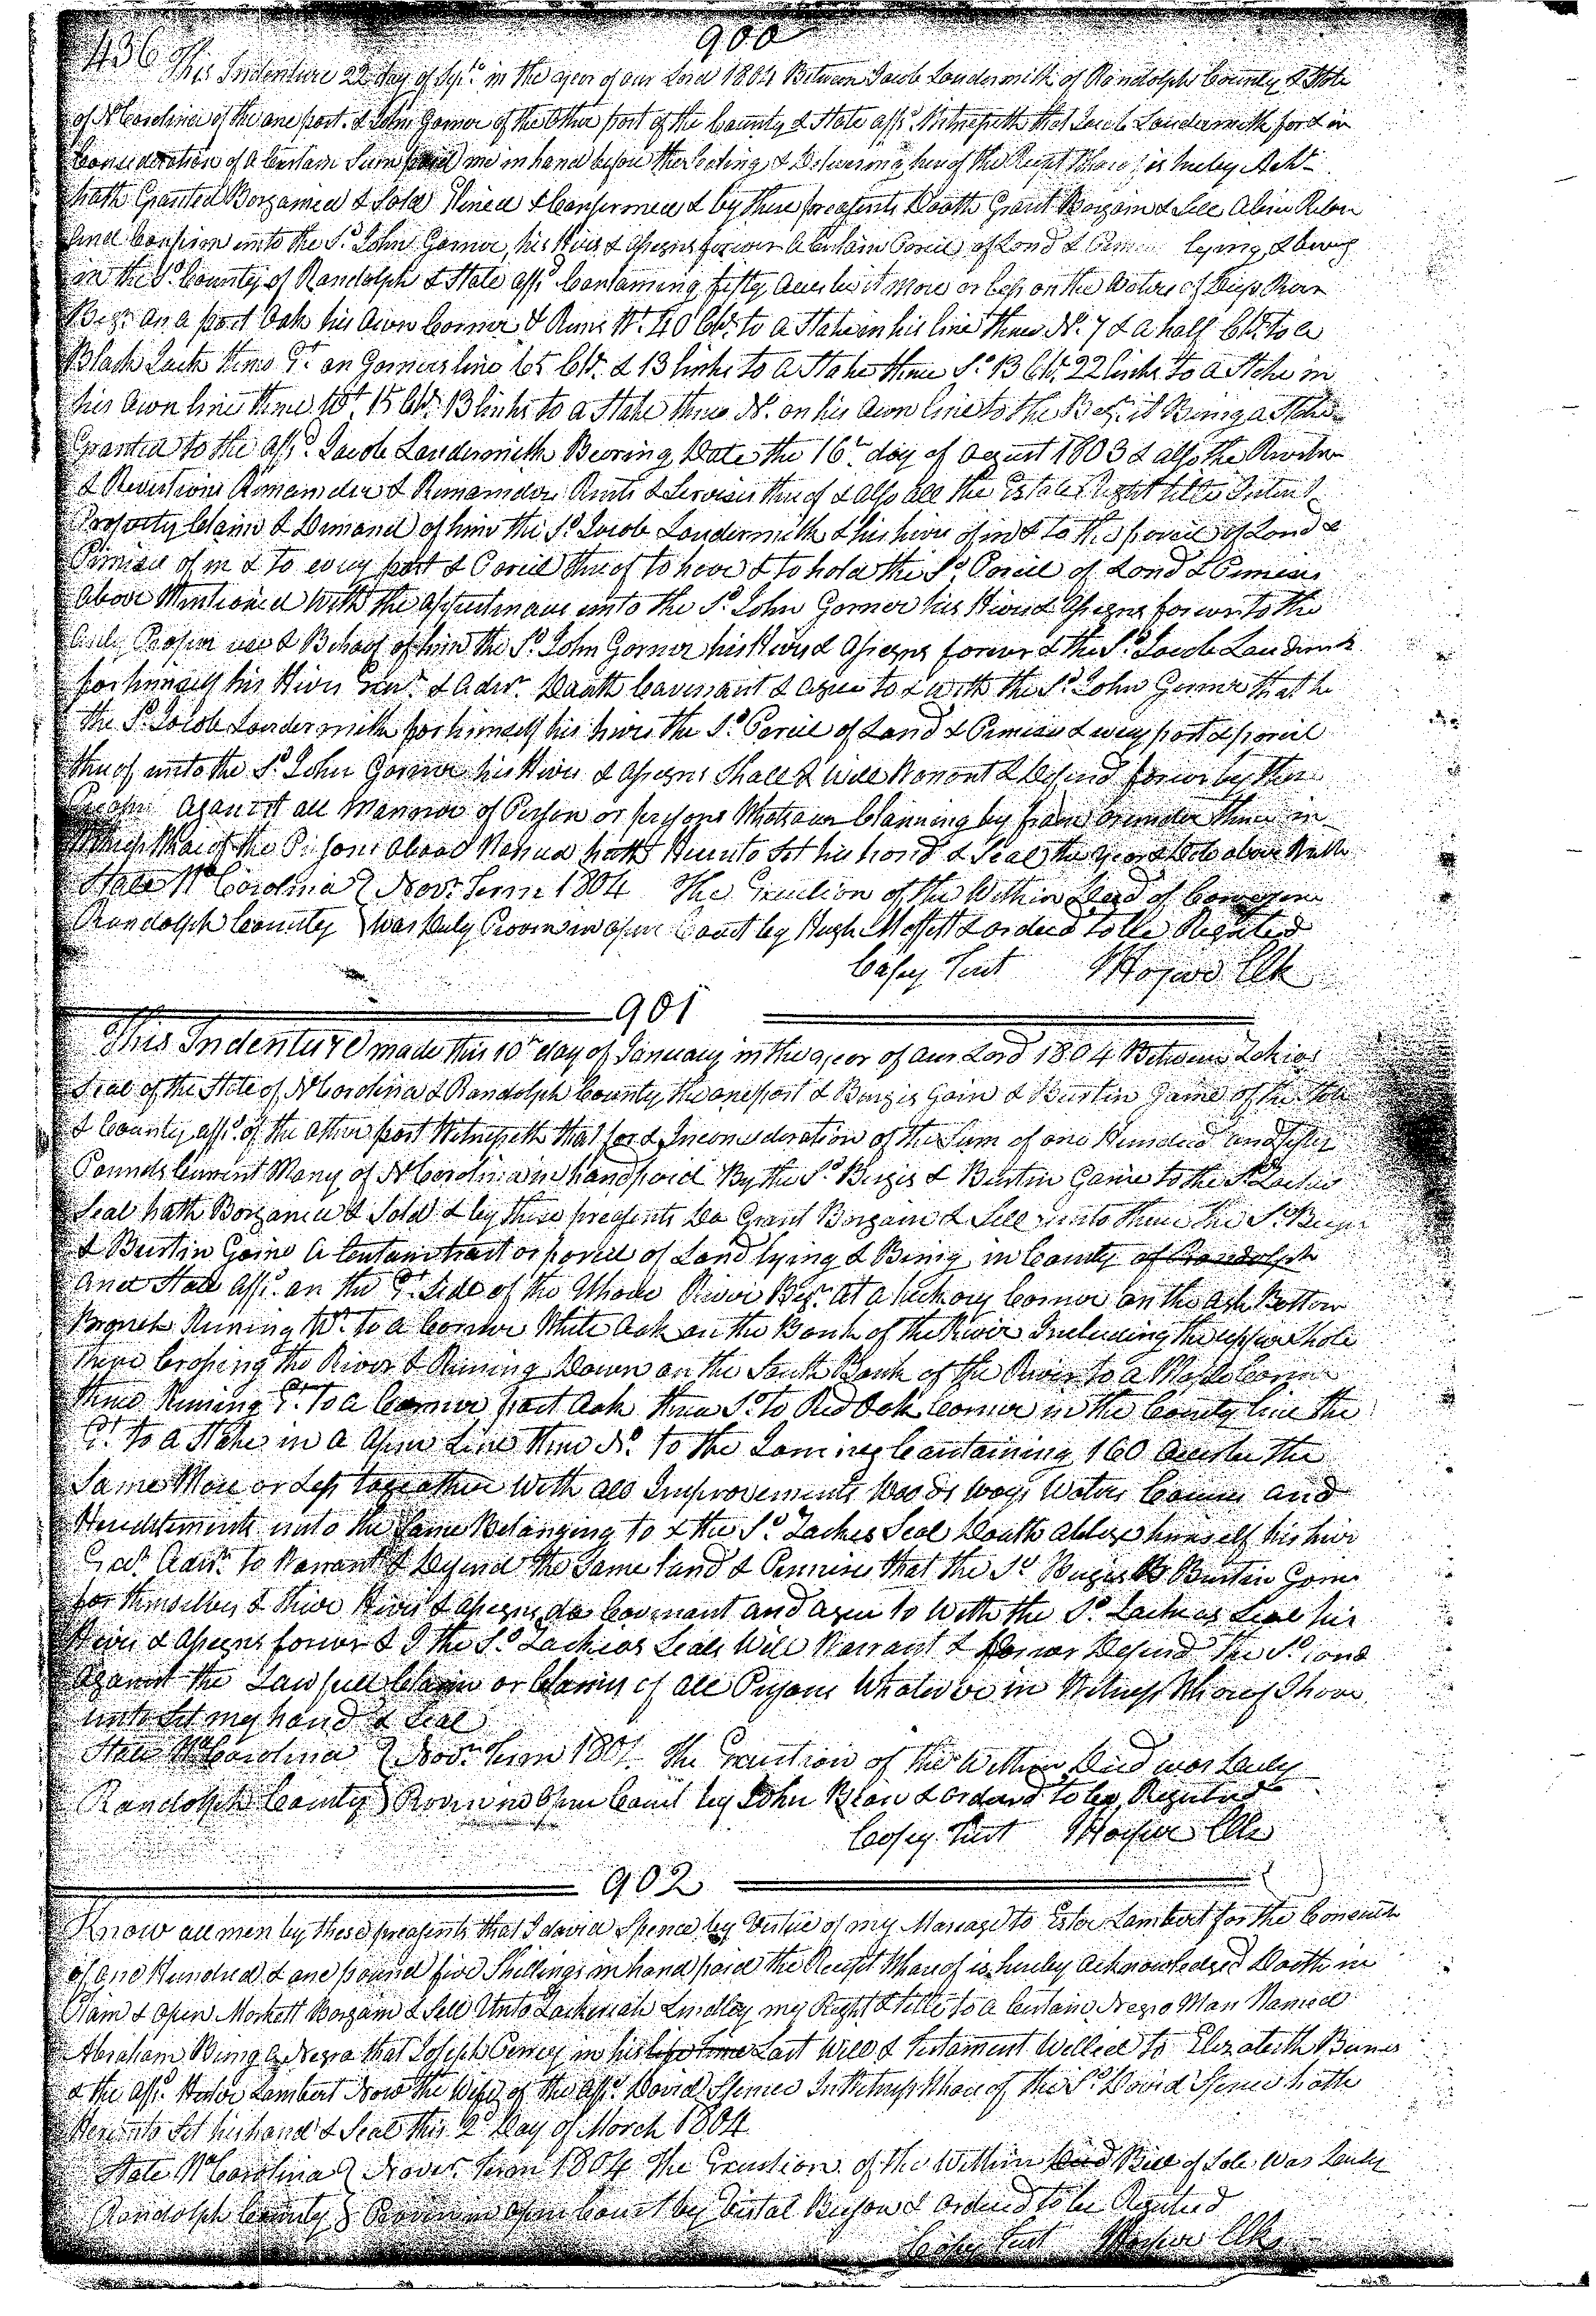 900
436 This Indenture 22 day of Sepr. in the year of our Lord 1804 Between Jacob Laudermilk of Randolph County & State
of N Carolina of the one part & John Garner of the other part of the County & State affsd. Witnesseth that Jacob Laudermilk for & in
Consideration of a Certain Sum paid me in hand before the Sealing & Delivering hereof the Recept Whereof is hereby Ackd
hath Granted Bargained & Sold Aliened & Confirmed & by these preasents Doath Grant Bargain & Sell Alien
And Confirm unto the Sd. John Garner his Hires & Assegns forever a Certain Parcil of Land & lying & being
in the Sd. County of Randolph & State affsd Containing fifty Acres be it more or less on the Waters of Deep River
Begn. an a post Oak his own Corner & Runs Wt. 40 Chs. to a Stake in his line thence No. 7 & a half Chs. to a
Black Jack thence Et. on Garners line 65 Chs. & 13 links to a Stake thence So. 13 Chs. 22 links to a Stake in
his own line thence Wt. 15 Chs. 13 links to a Stake thence No. on his own line to the Begn. it Being a State
Granted to the affsd. Jacob Laudermilk Bearing Date the 16th day of Agust 1803 & allso the
& Revertions Remainder & Remainders Rents & Servises thereof & also all the Estate Right title Intrust
Property Claim & Demand of him the Sd. Jacob Laudermilk & his hires of in & to the parcil of Land &
Primises of in & to every part & Parcil thereof to have & to hold the Sd. Parcil of Land & Primises
above Mentioned With the appertinances unto the Sd. John Garner his Hires & Assegns forever to the
only Proper use & Behoof of him the Sd. John Garner his Hires & Assegns forever & the Sd. Jacob Laudermilk
for himself his Hires Exrs. & Admrs. Doath Covenant & agree to & with the Sd. John Garner that he
the Sd. Jacob Laudermilk for himself his hires the Sd. Parcil of Land & Primises & every part & parcil
thereof unto the Sd. John Garner his Hires & Assegns Shall & Will Warrant & Defend forever by these
against all Manner of Person or persons Whatsoever Claiming by from or under them in
Witness Whareof the Persons above Named hath Hereunto Set his hand & Seal the year & Date above Written
State No Carolina } Novr. Term 1804 The Execution of the Within Deed of
Randolph County } Was Duly Proven in open Court by Hugh Moffett & ordered to be Registred
Copey Test J Harper Clk
901
This Indenture made this 10th day of January in the year of our Lord 1804 Between Zachias
Seal of the State of N Carolina & Randolph County the one part & Burgis Gain & Burtin Gaine of the State
& County affsd. of the other part Witnesseth that for & Inconsideration of the Sum of one Hundred and fifty
Pounds Current Money of N Carolina in hand paid By the Sd. Burgis & Burtin Gaine to the Sd. Zachias
Seal hath Bargained & Sold & by these preasents Do Grant Bargain & Sell unto them the Sd. Burgis
& Burtin Gaine a Certain tract or parcil of Land lying & Being in County of Randolph
and State affsd. on the Et. Side of the Uhwarie River Begn. at a hickory Corner on the Ash Bottom
Branch Runing Wt. to a Corner White Oak on the Bank of the River Including the upper Shole
thence Crossing the River & Runing Down on the South Bank of the River to a Maple Corner
thence Runing Et. to a Corner post Oak thence So. to Red Oak Corner in the County line the
Et. to a Stake in a Open Line thence No. to the Containing 160 Acres be the
Same More or Less togeather with all Improvements Woods ways Waters Courses and
Heredetements unto the Same Belonging to & the Sd. Zachias Seal Doath Oblige himself his hires
Exrs. Admrs. to Warrant & Defend the Same land & Premises that the Sd. Burgis & Burtin Gaine
for themselves & thire Hires & Assegns do Covenant and agree to With the Sd. Zachias Seal his
Hires & Assegns forever & I the Sd. Zachias Seal Will Warrant & forever Defend the Sd. land
against the Lawfull Claim or Claims of all Persons Whatever in Witness Whareof I have
unto Set my hand & Seal
State No Carolina } Novr. Term 1804 The Execution of the Within Deed was Duly
Randolph County } Proven in Open Court by John & ordered to be Registred
Copey Test J Harper Clk
902
Know all men by these preasents that I david Spence by Vertue of my Mareage to Ester Lambert for the
of one Hundred & one pound five Shillings in hand paid the Recept Whareof is hereby acknowledged Doath in
Plain & Open Markett Bargain & Sell Unto Zachariah Lindley my Right & title to a Certain Negro Man Named
Abraham Being a Negro that Joseph in his life time Last Will & Testament Willed to Elizabeth
& the affsd. Lambert Now the Wife of the affsd. David Spence In Witness Whareof the Sd. David Spence hath
Hereunto Set his hand & Seal this 2d Day of March 1804
State No Carolina } Novr. Term 1804 The Execution of the Within Deed Bill of Sale Was Duly
Randolph County } Proven in Open Court by & Ordered to be Registred
Copey Test J Harper Clk